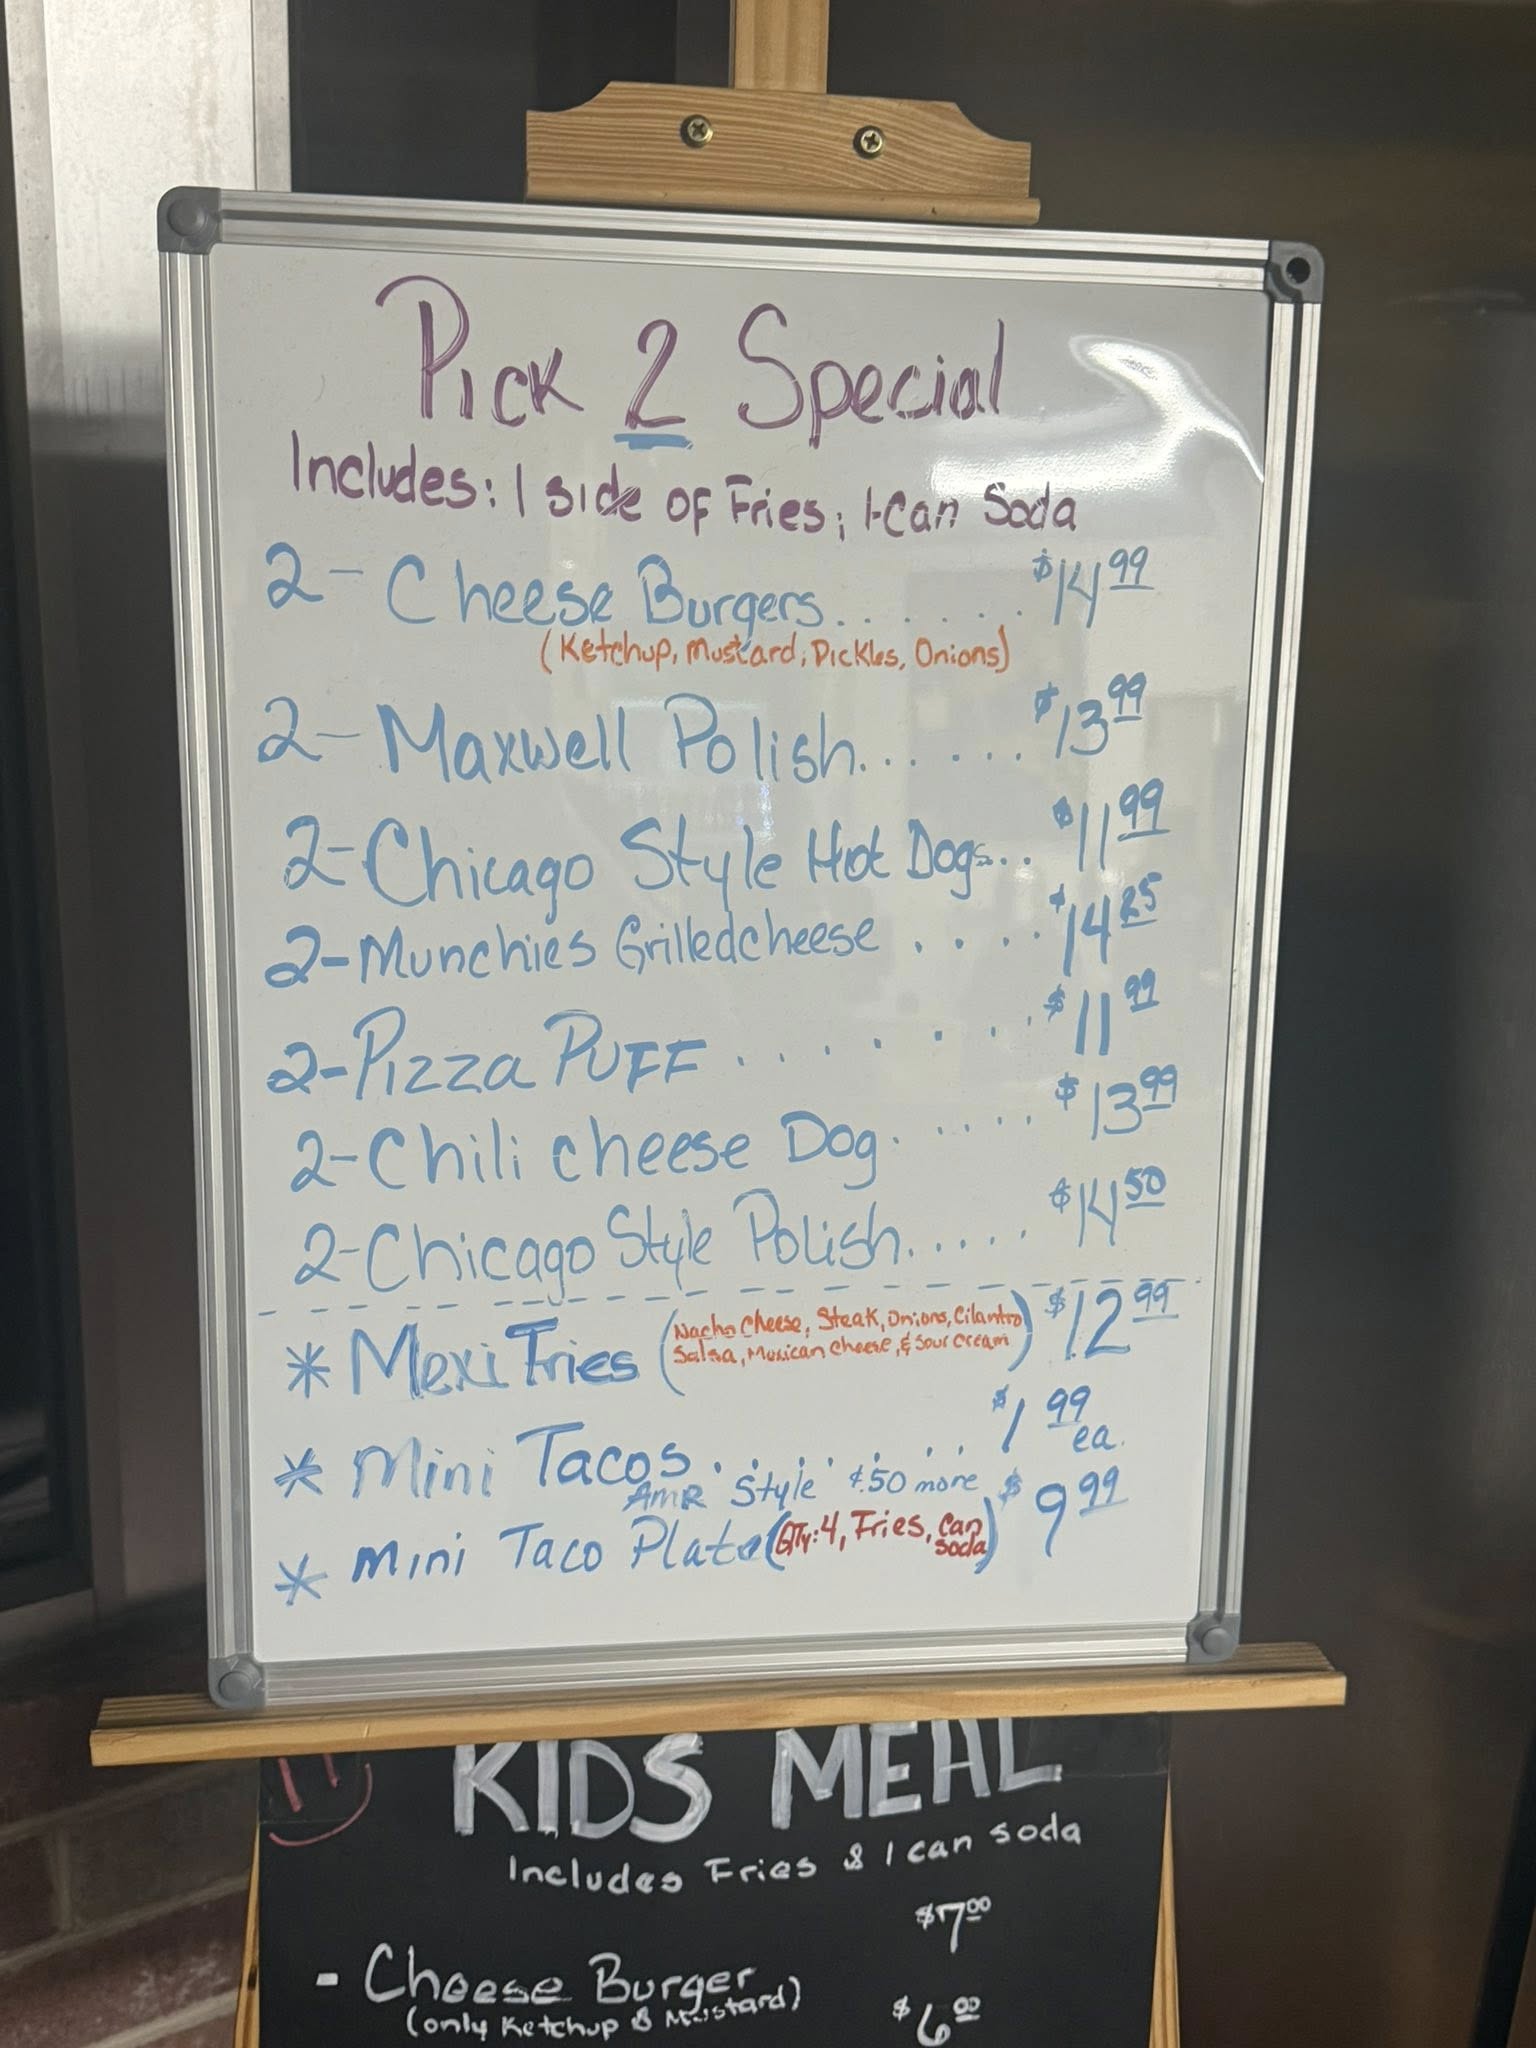 Pick 2 Special
Includes: 1 side of Fries; 1-Can Soda
2- Cheese Burgers....... $14.99
(Ketchup, Mustard, Pickles, Onions)
2- Maxwell Polish...... $13.99
2- Chicago Style Hot Dogs... $11.99
2- Munchies Grilledcheese .... $14.25
2- Pizza Puff ....... $11.99
2- Chili cheese Dog..... $13.99
2- Chicago Style Polish..... $14.50
* Mexi Fries (Nacho Cheese, Steak, Onions, Cilantro $12.99
Salsa, Mexican cheese, & Sour cream)
* Mini Tacos....... $1.99 ea.
AMR Style ¢.50 more
* Mini Taco Plate (QTy: 4, Fries, Can soda) $9.99
KIDS MEAL
Includes Fries & 1 can soda
$7.00
- Cheese Burger
(only Ketchup & Mustard)
$6.00